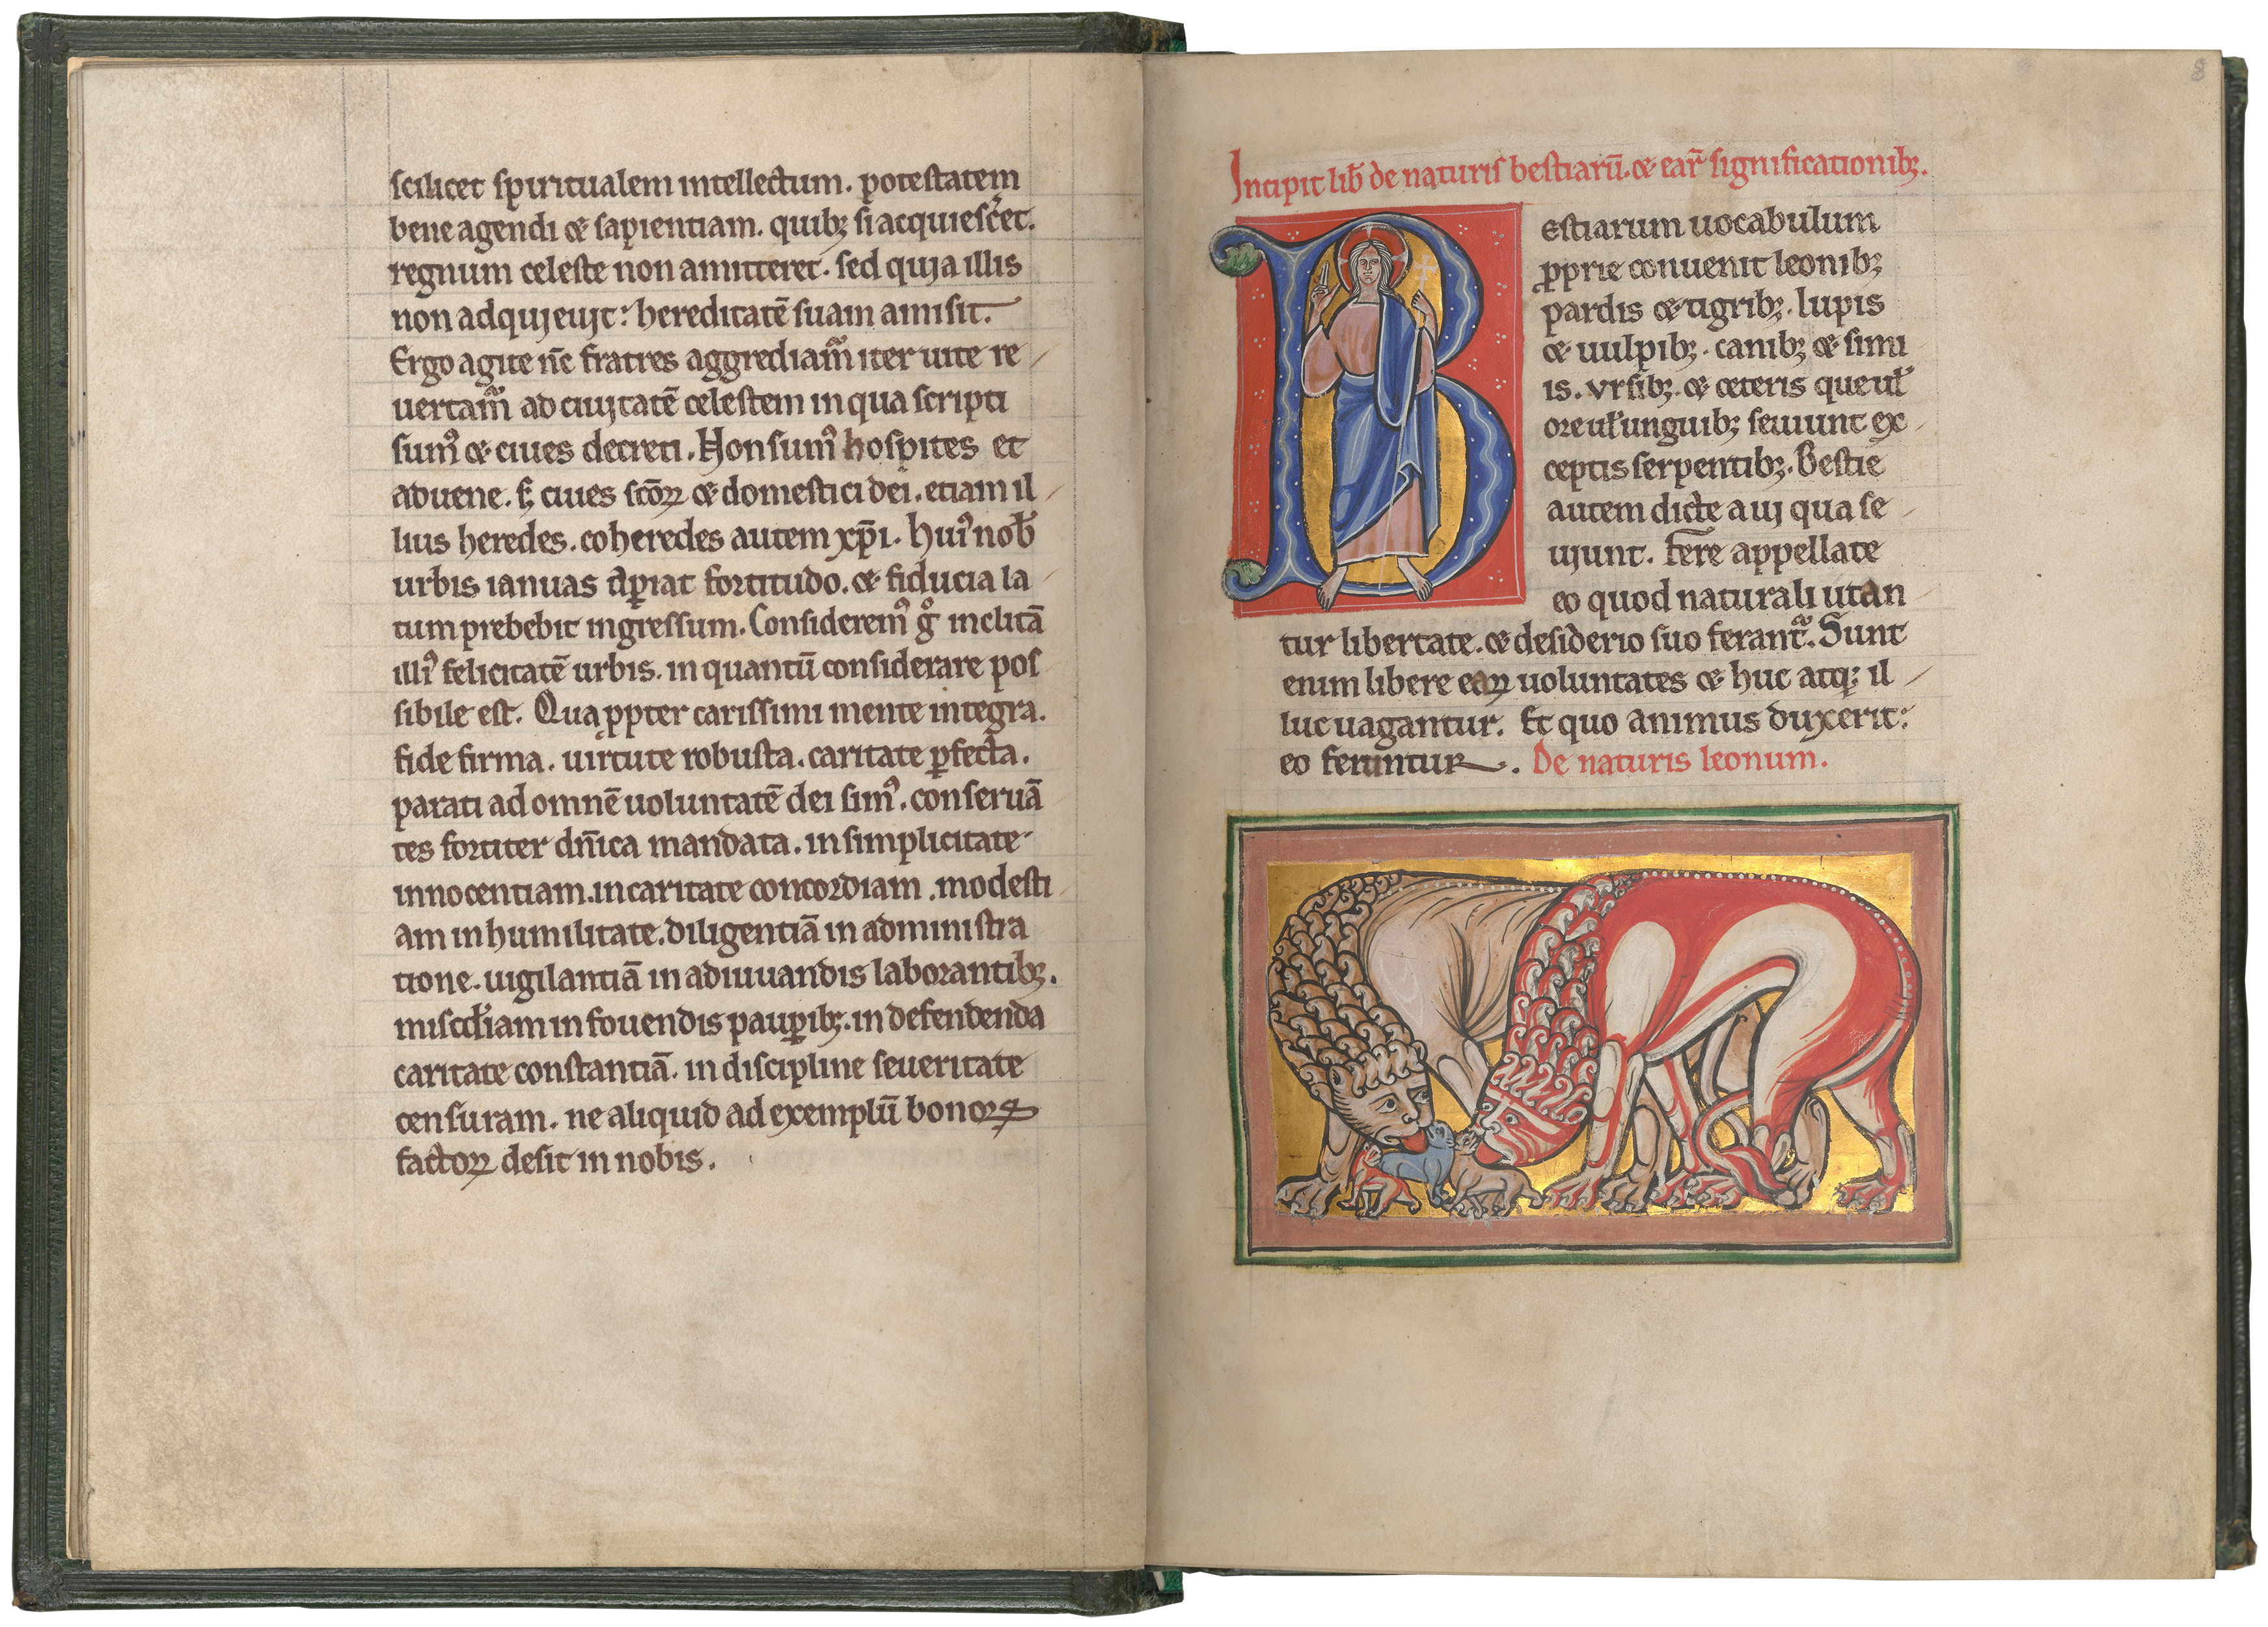 scilicet spiritualem intellectum. potestatem
bene agendi & sapientiam. quibꝫ si acquiesc̄et.
regnum celeste non amitteret. sed quia illis
non adquieuit: hereditatē suam amisit.
Ergo agite nc̄ fratres aggrediamᷓ iter uite re
uertamᷓ ad ciuitatē celestem in qua scripti
sumꝰ & ciues decreti. Non sumꝰ hospites et
aduene. sꝫ ciues sc̄oꝝ & domestici dei. etiam il
lius heredes. coheredes autem xp̄i. huiꝰ nob̄
urbis ianuas aꝑiat fortitudo. & fiducia la
tum prebebit ingressum. Consideremꝰ gͦ inclitā
illiꝰ felicitatē urbis. in quantū considerare pos
sibile est. Quaꝓpter carissimi mente integra.
fide firma. uirtute robusta. caritate ꝑfecta.
parati ad omnē uoluntatē dei simꝰ. conseruā
tes fortiter dn̄ica mandata. in simplicitate
innocentiam. in caritate concordiam. modesti
am in humilitate. diligentiā in administra
tione. uigilantiā in adiuuandis laborantibꝫ.
miscd̄iam in fouendis pauꝑibꝫ. in defendenda
caritate constantiā. in discipline seueritate
censuram. ne aliquid ad exemplū bonoꝝ
factoꝝ desit in nobis.
8
Incipit lib̄ de naturis bestiarū. & eaꝝ significationibꝫ.
Bestiarum uocabulum
ꝓprie conuenit leonibꝫ
pardis & tigribꝫ. lupis
& uulpibꝫ. canibꝫ & simi
is. vrsibꝫ. & ceteris que ul̄
ore ul̄ unguibꝫ seuiunt ex
ceptis serpentibꝫ. Bestie
autem dicte a ui qua se
uiunt. fere appellate
eo quod naturali utan
tur libertate. & desiderio suo ferantᷓ. Sunt
enim libere eaꝝ uoluntates & huc atqꝫ il
luc uagantur. Et quo animus duxerit:
eo feruntur. De naturis leonum.